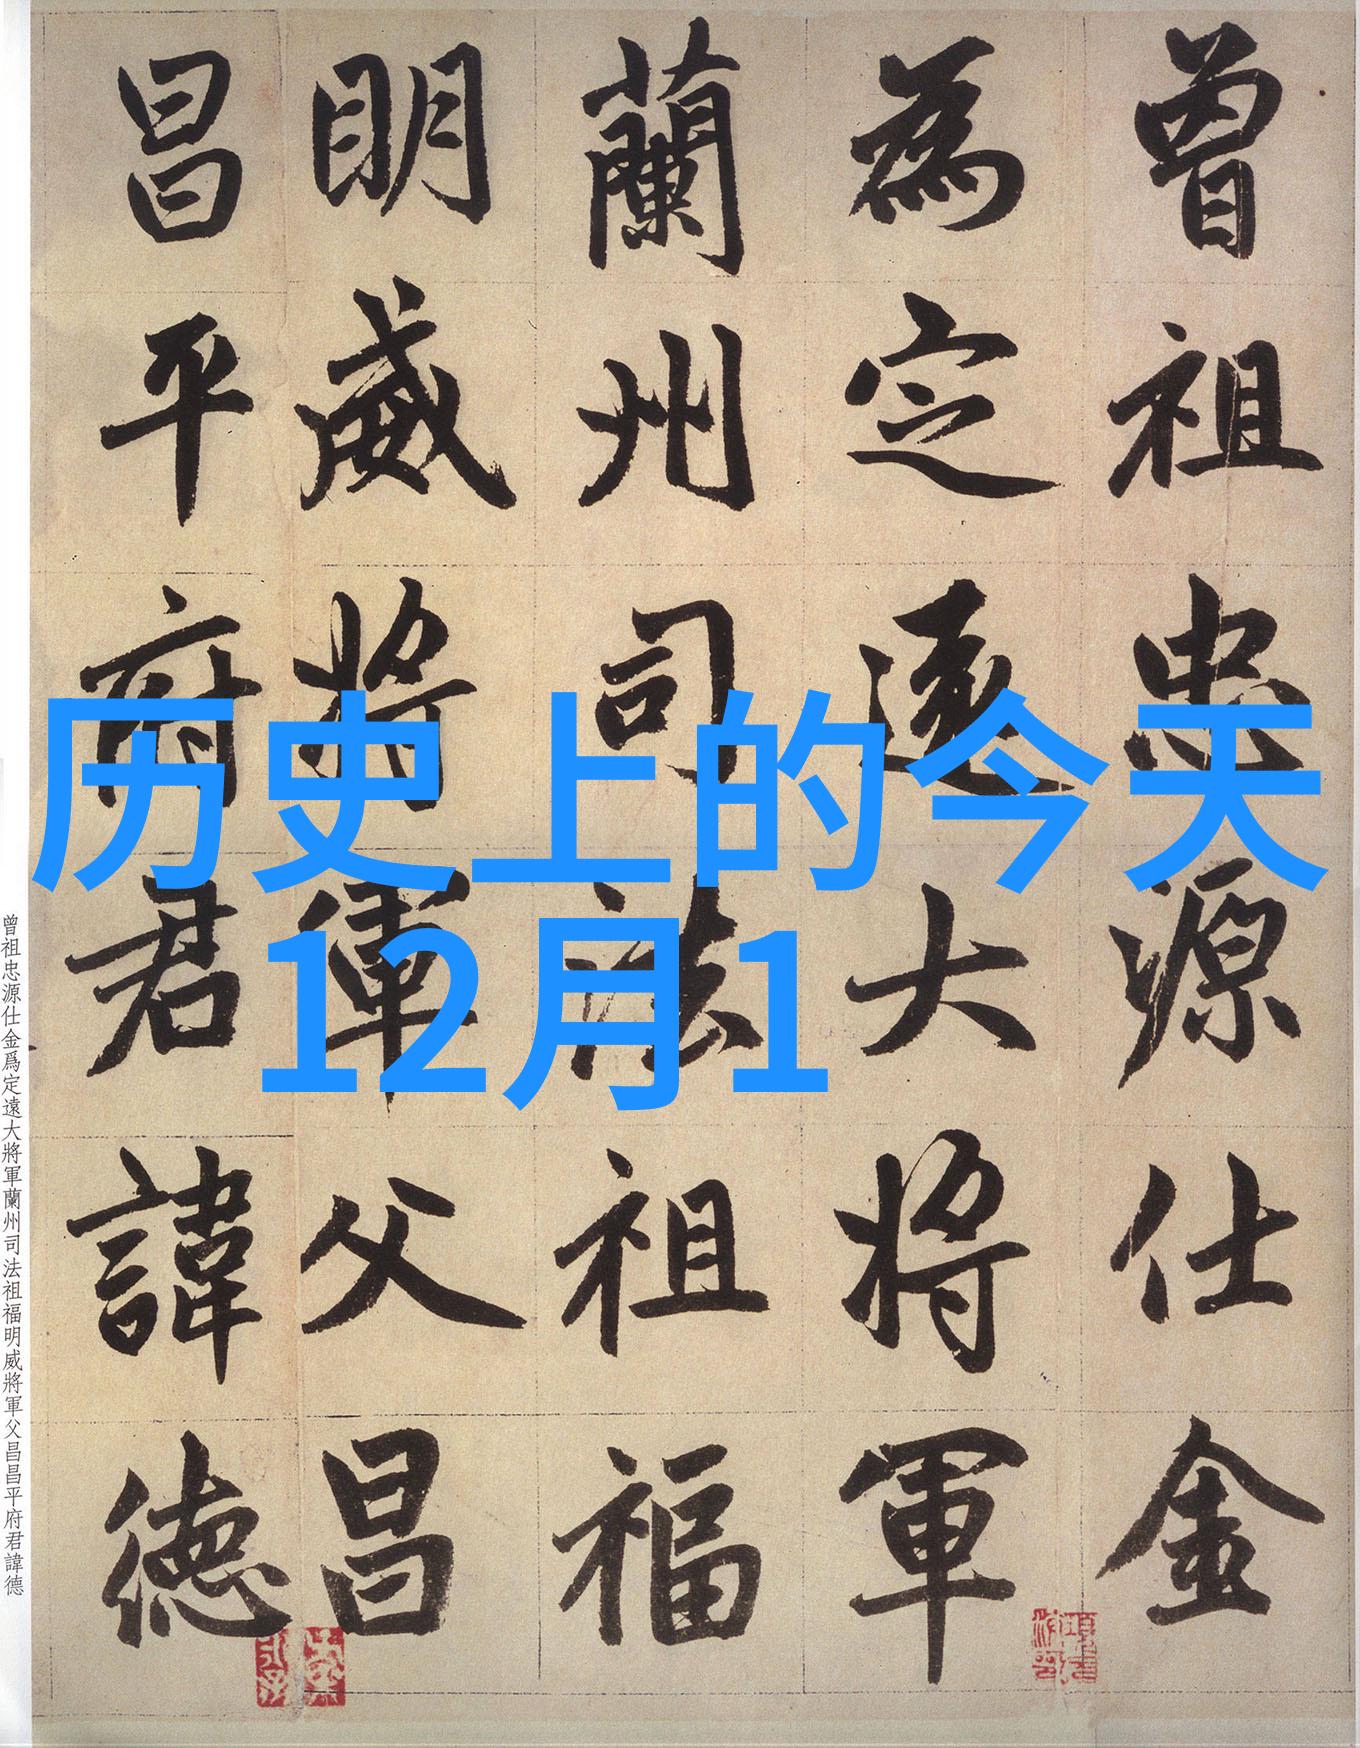 历史上的今天
12月1
曾祖忠源仕金
為定遠大将軍
蘭州司法祖福
明威将軍父昌
昌平府君諱徳
曾祖忠源仕金爲定遠大將軍蘭州司法祖福明威將軍父昌昌平府君諱德